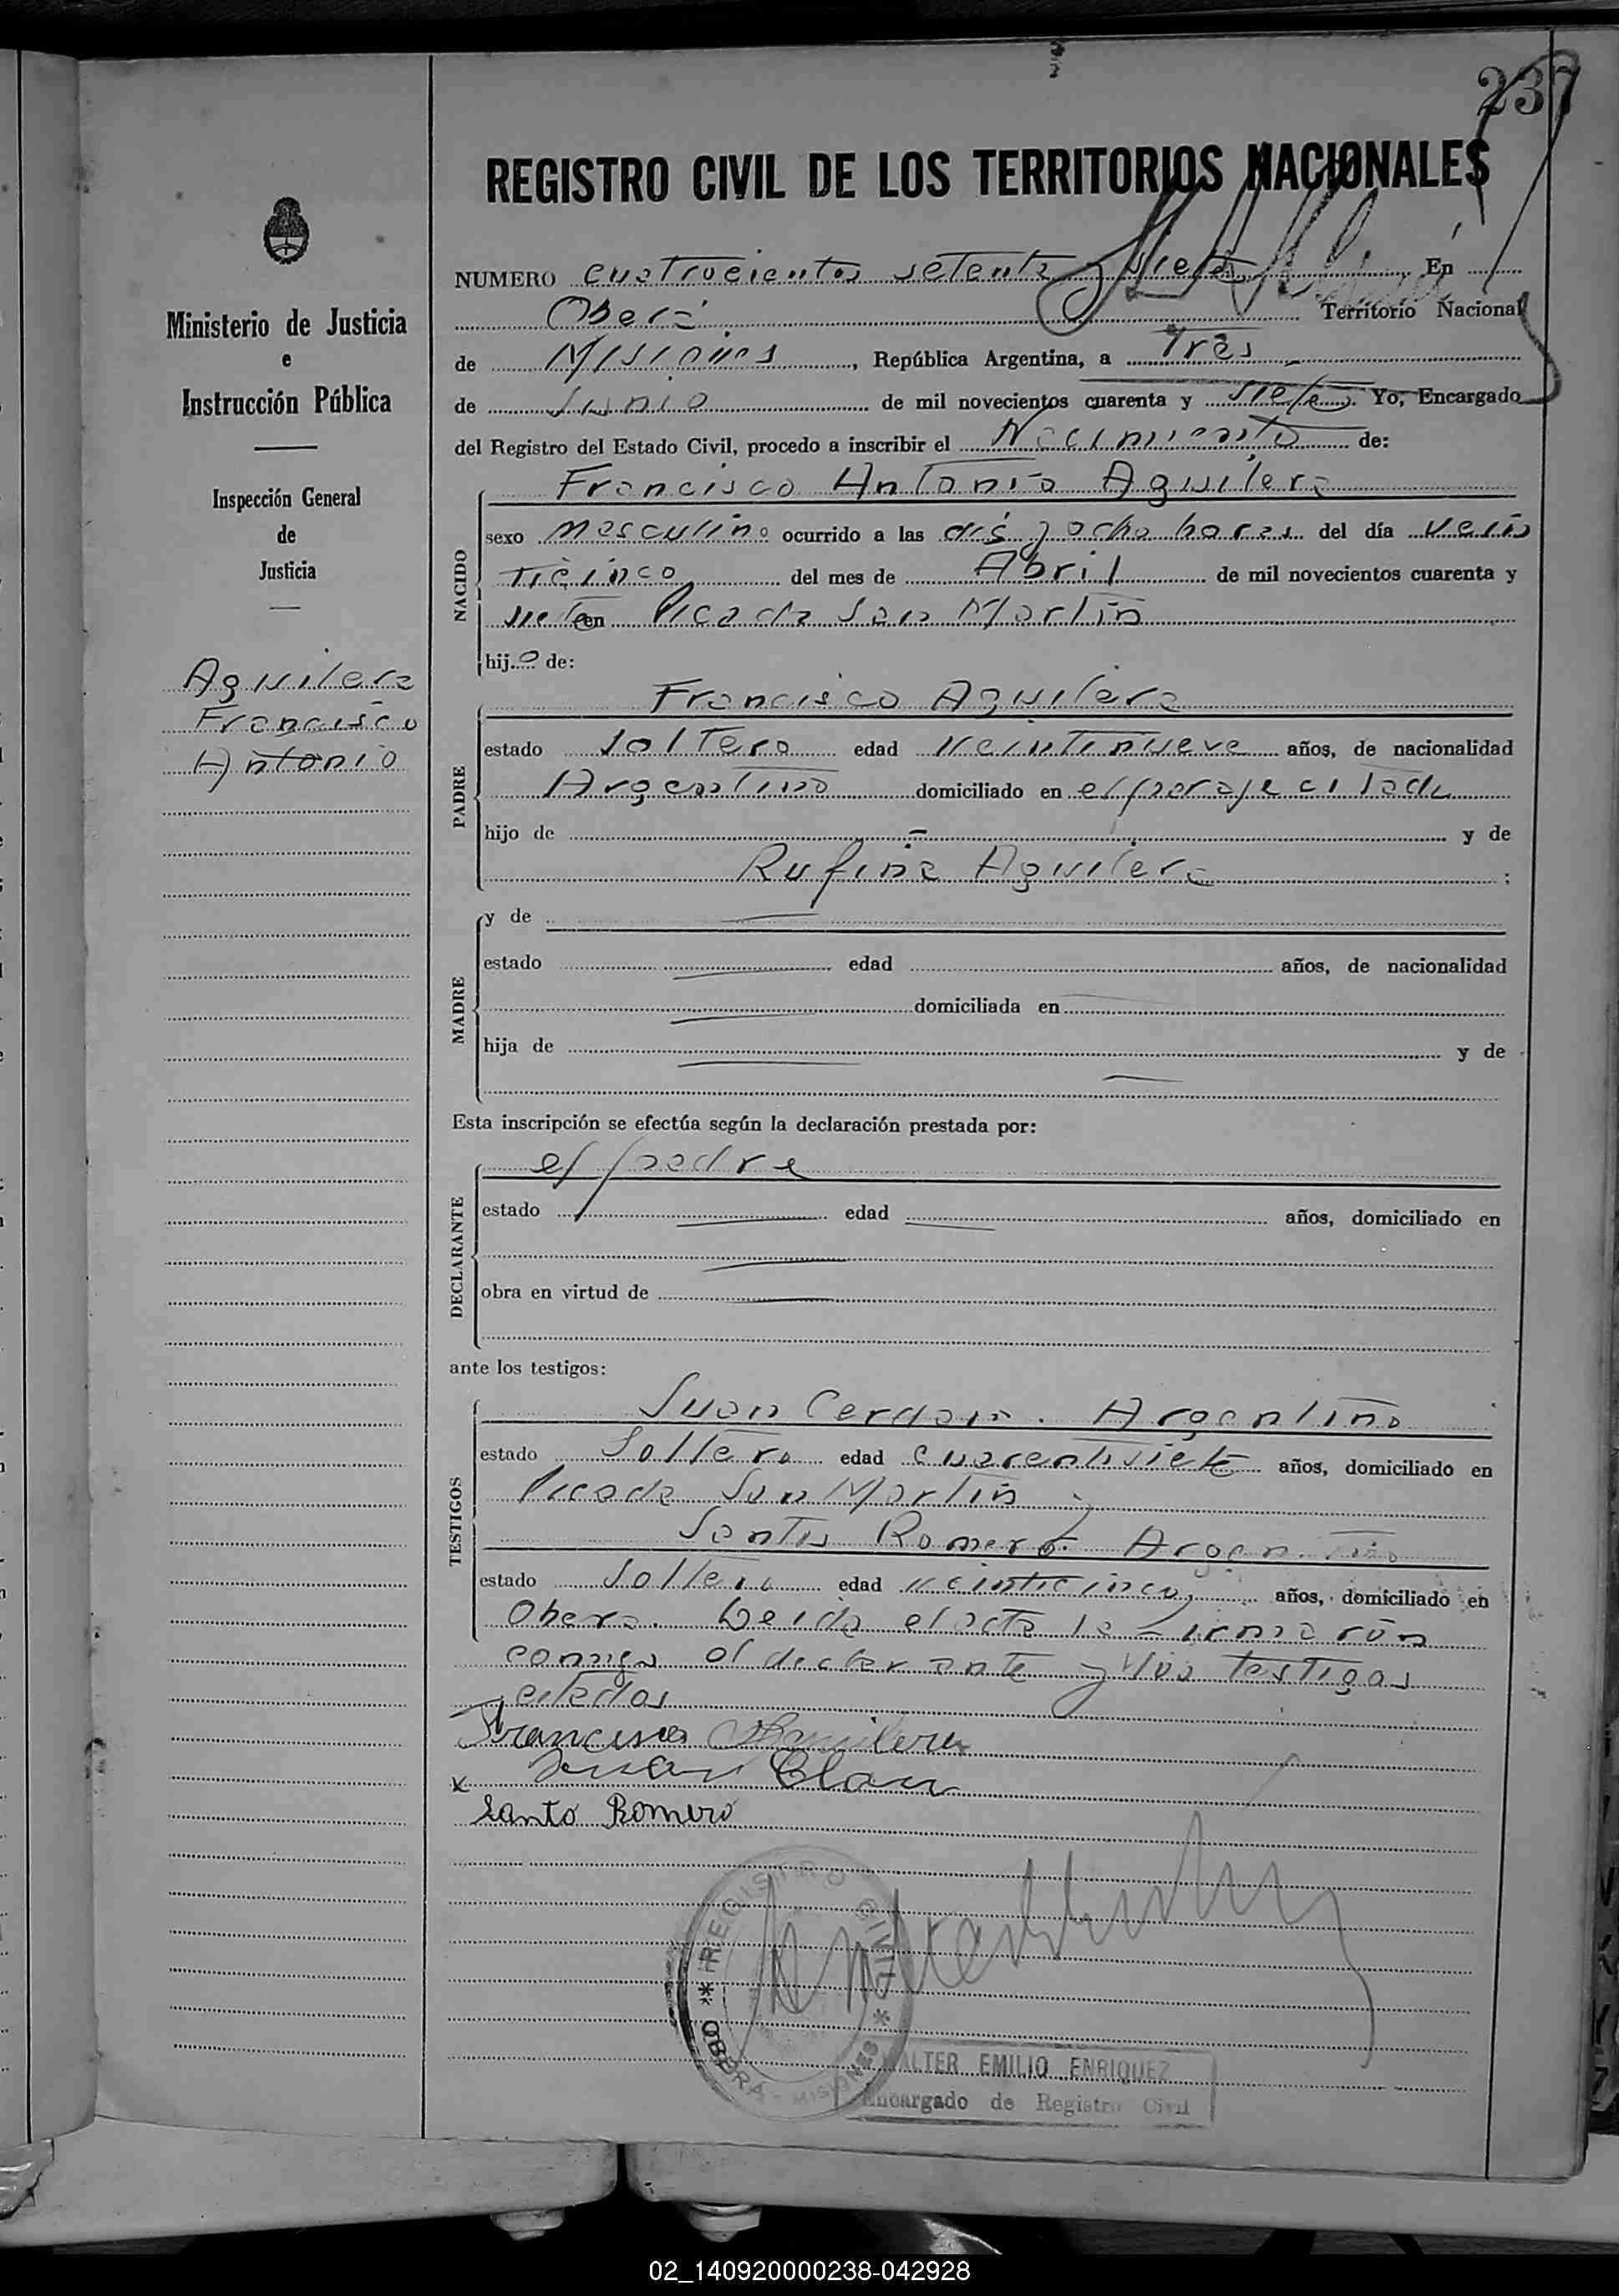 237
REGISTRO CIVIL DE LOS TERRITORIOS NACIONALES
NUMERO cuatrocientos setenta y siete En
Oberá Territorio Nacional
de Misiones, República Argentina, a tres
de Junio de mil novecientos cuarenta y siete. Yo, Encargado
del Registro del Estado Civil, procedo a inscribir el Nacimiento de:
NACIDO
Francisco Antonio Aguilera
sexo masculino ocurrido a las dis y ocho horas del día vein
ticinco del mes de Abril de mil novecientos cuarenta y
siete en Picada San Martin
hijo de:
PADRE
Francisco Aguilera
estado soltero edad veintinueve años, de nacionalidad
Argentino domiciliado en el paraje citado
hijo de - y de
Rufina Aguilera ;
MADRE
y de
estado edad años, de nacionalidad
domiciliada en
hija de y de
Esta inscripción se efectúa según la declaración prestada por:
DECLARANTE
el padre
estado edad años, domiciliado en
obra en virtud de
ante los testigos:
TESTIGOS
Juan . Argentino
estado Soltero edad cuarentisiete años, domiciliado en
Picada San Martin y
Santos Romero. Argentino
estado Soltero edad veinticinco, años, domiciliado en
Obera. Leida el acta la firmaron
conmigo el declarante y los testigos
citados
Francisco Aguilera
x Juan
Santo Romero
* REGISTRO CIVIL *
* OBERA - MISIONES *
WALTER EMILIO ENRIQUEZ
Encargado de Registro Civil
Ministerio de Justicia
e
Instrucción Pública
Inspección General
de
Justicia
Aguilera
Francisco
Antonio
02_140920000238-042928